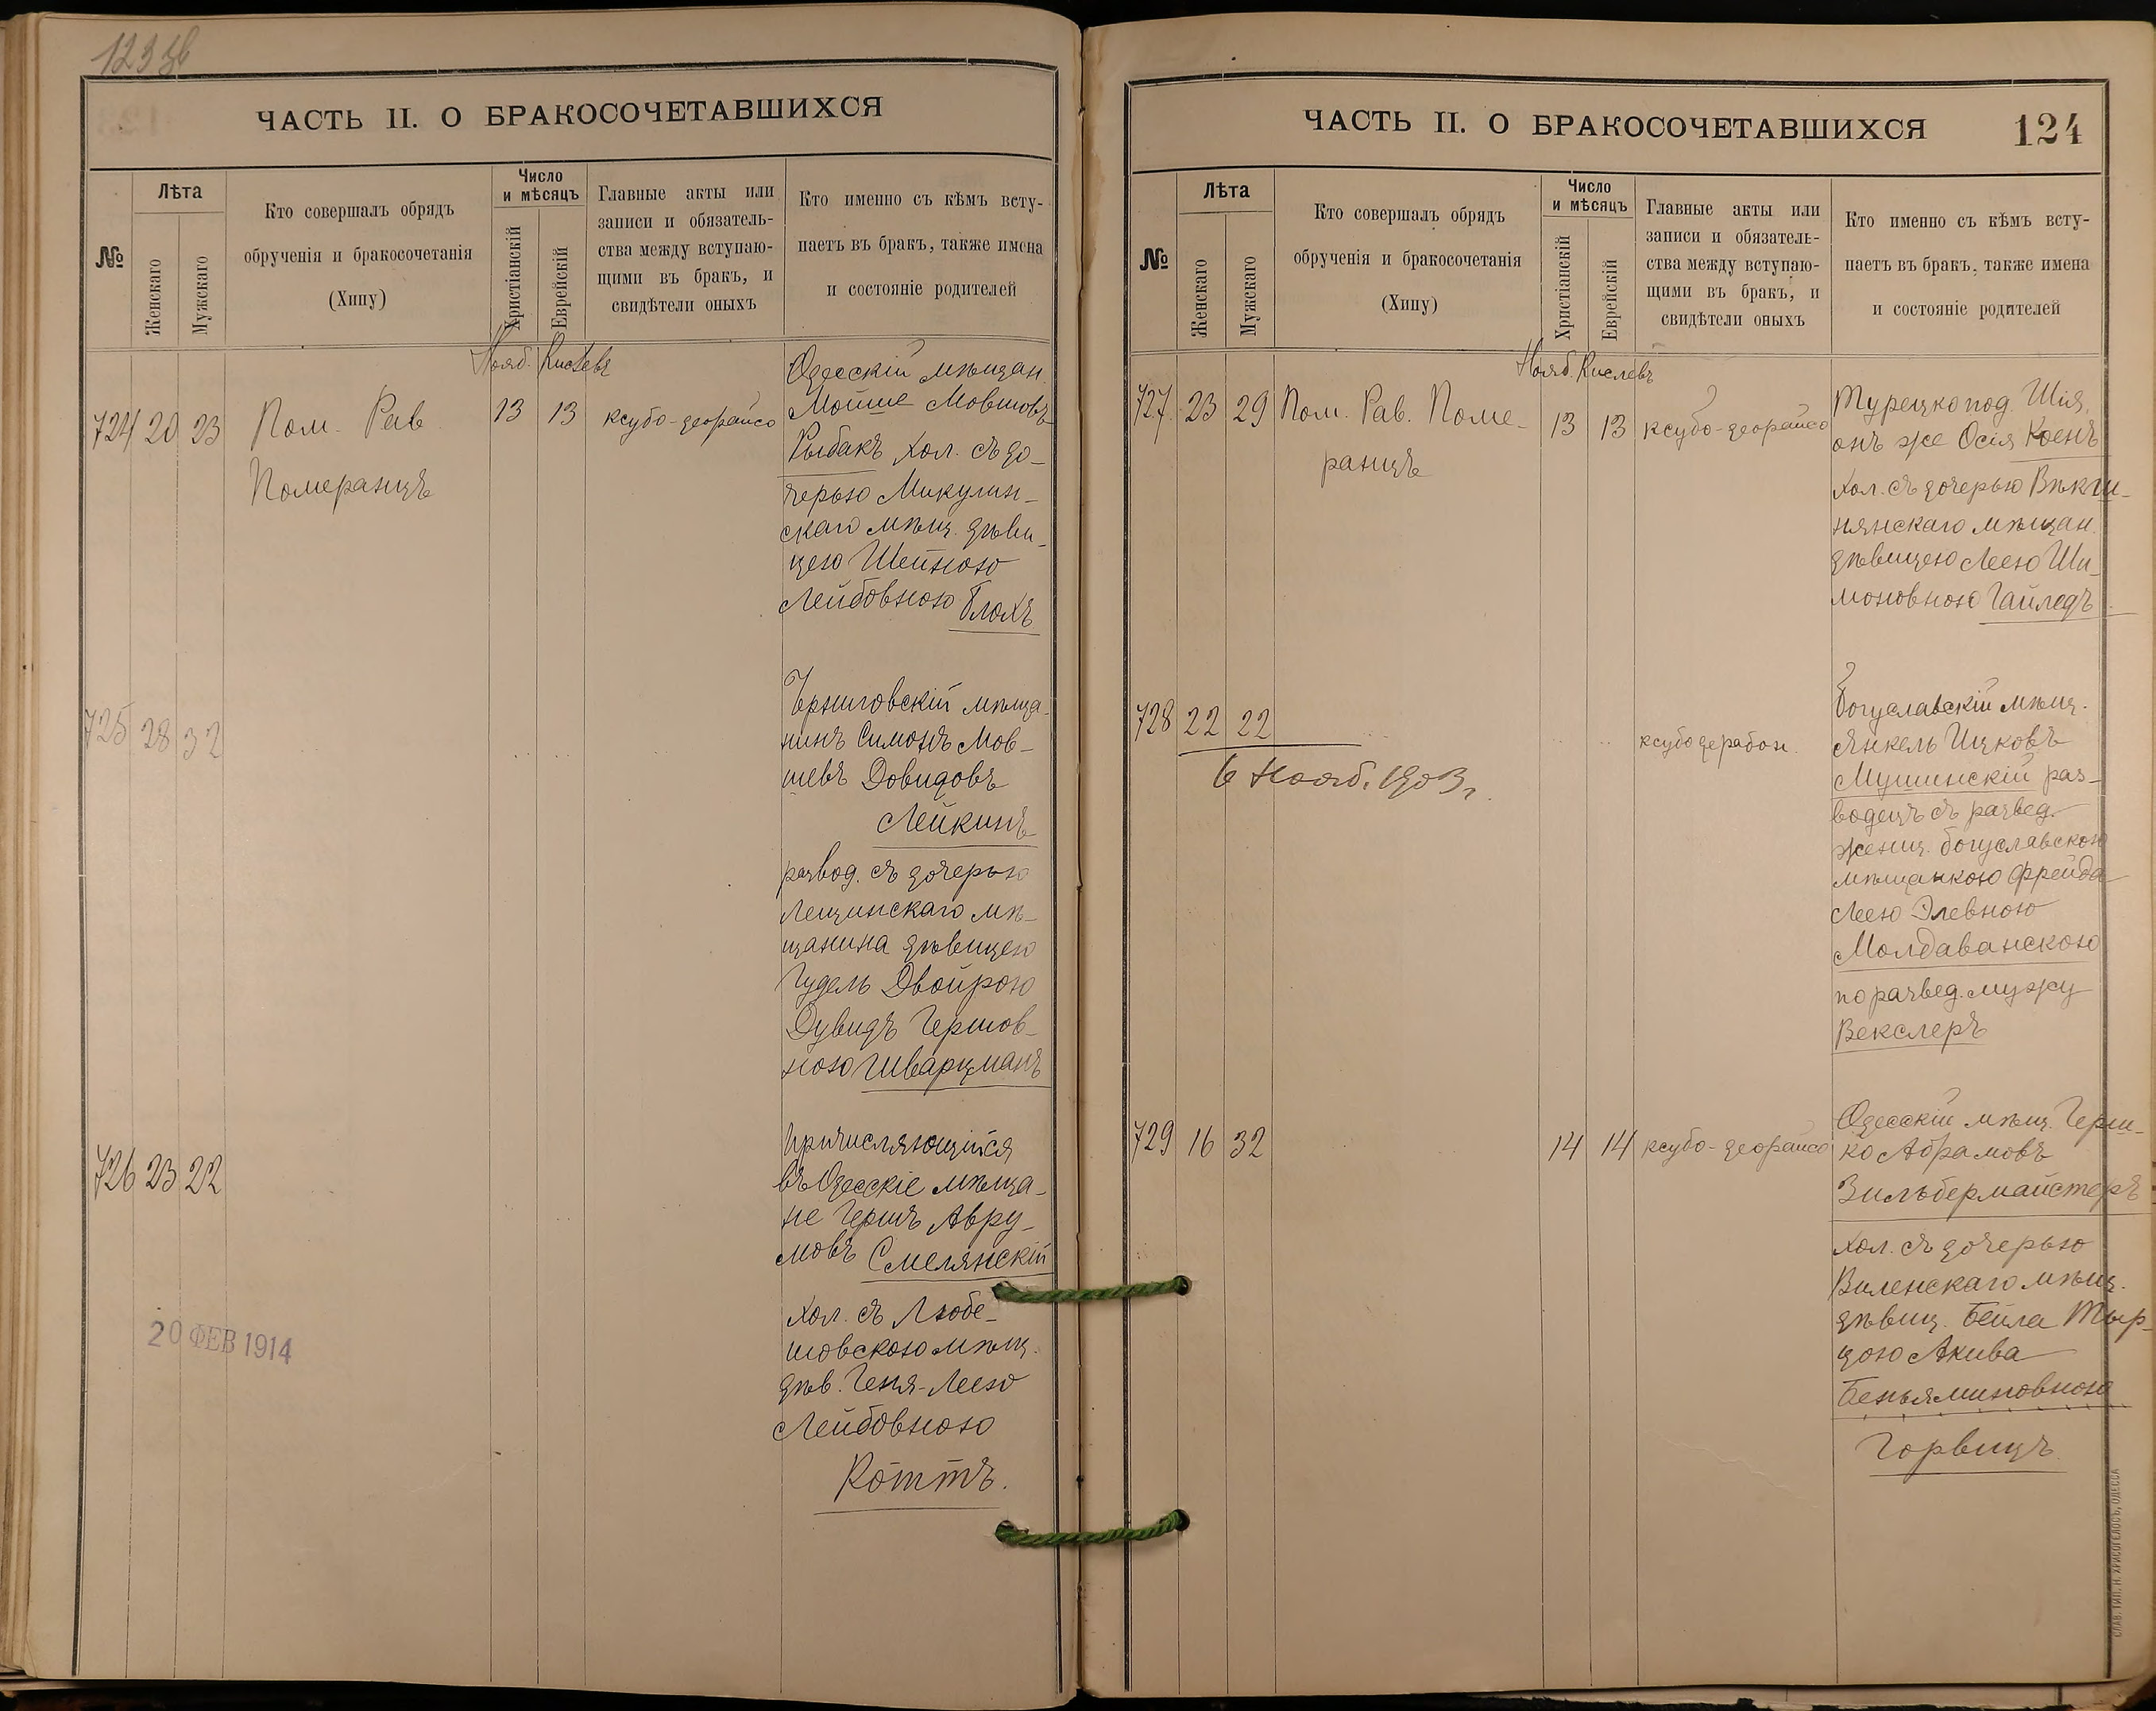 123 об
ЧАСТЬ II. О БРАКОСОЧЕТАВШИХСЯ
№
Лѣта
Женскаго
Мужскаго
Кто совершалъ обрядъ
обрученія и бракосочетанія
(Хипу)
Число
и мѣсяцъ
Христіанскій
Еврейскій
Главные акты или
записи и обязатель-
ства между вступаю-
щими въ бракъ, и
свидѣтели оныхъ
Кто именно съ кѣмъ всту-
паетъ въ бракъ, также имена
и состояніе родителей
Нояб. Кислевъ
724 20 23 Пом. Рав
Померанцъ
13 13 ксубо-деорайсо
Одесскій мѣщан.
Мойше Мовшовъ
Рыбакъ хол. съ до-
черью Микулин-
скаго мѣщ. дѣви-
цею Шейною
Лейбовною Блохъ
725 28 32
Черниговскій мѣща-
нинъ Симонъ Мов-
шевъ Довидовъ
Лейкинъ
развод. съ дочерью
Лещинскаго мѣ-
щанина дѣвицею
Гудель Двойрою
Дувидъ Гершов-
ною Шварцманъ
726 23 22
Причисляющійся
въ Одесскіе мѣща-
не Гершъ Авру-
мовъ Смелянскій
хол. съ Любе-
шовскою мѣщ.
дѣв. Геня-Леею
Лейбовною
Коттъ.
20 ФЕВ 1914
ЧАСТЬ II. О БРАКОСОЧЕТАВШИХСЯ
124
№
Лѣта
Женскаго
Мужскаго
Кто совершалъ обрядъ
обрученія и бракосочетанія
(Хипу)
Число
и мѣсяцъ
Христіанскій
Еврейскій
Главные акты или
записи и обязатель-
ства между вступаю-
щими въ бракъ, и
свидѣтели оныхъ
Кто именно съ кѣмъ всту-
паетъ въ бракъ, также имена
и состояніе родителей
Нояб. Кислевъ
727 23 29 Пом. Рав. Поме-
ранцъ
13 13 ксубо-деорайсо
Турецкопод. Шія,
онъ же Осія Коенъ
хол. съ дочерью
нянскаго мѣщан.
дѣвицею Леею Ши-
моновною Гайледъ
728 22 22
6 Нояб. 1903 г.
ксубо дерабон.
Богуславскій мѣщ.
Янкель Ицковъ
Мушинскій раз-
водецъ съ развед.
женщ. богуславскою
мѣщанкою Фрейда-
Леею Элевною
Молдаванскою
по развед. мужу
Векслеръ
729 16 32
14 14 ксубо-деорайсо
Одесскій мѣщ. Герш-
ко Абрамовъ
Зильбермайстеръ
хол. съ дочерью
Виленскаго мѣщ.
дѣвиц. Бейла Тыр-
цою Акива
Беньяминовною
Горвицъ.
СЛАВ. ТИП. Н. ХРИСОГЕЛОСЪ, ОДЕССА